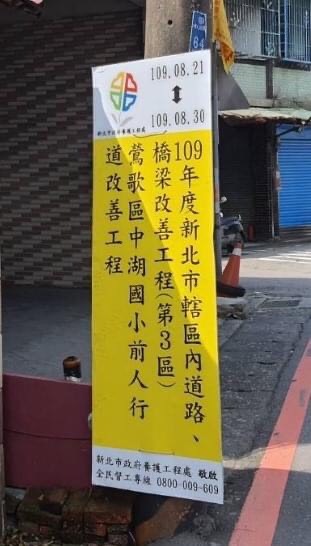 109.08.21
109.08.30
新北市政府養護工程處
109年度新北市轄區內道路、
橋梁改善工程(第3區)
鶯歌區中湖國小前人行
道改善工程
新北市政府養護工程處 敬啟
全民督工專線 0800-009-609